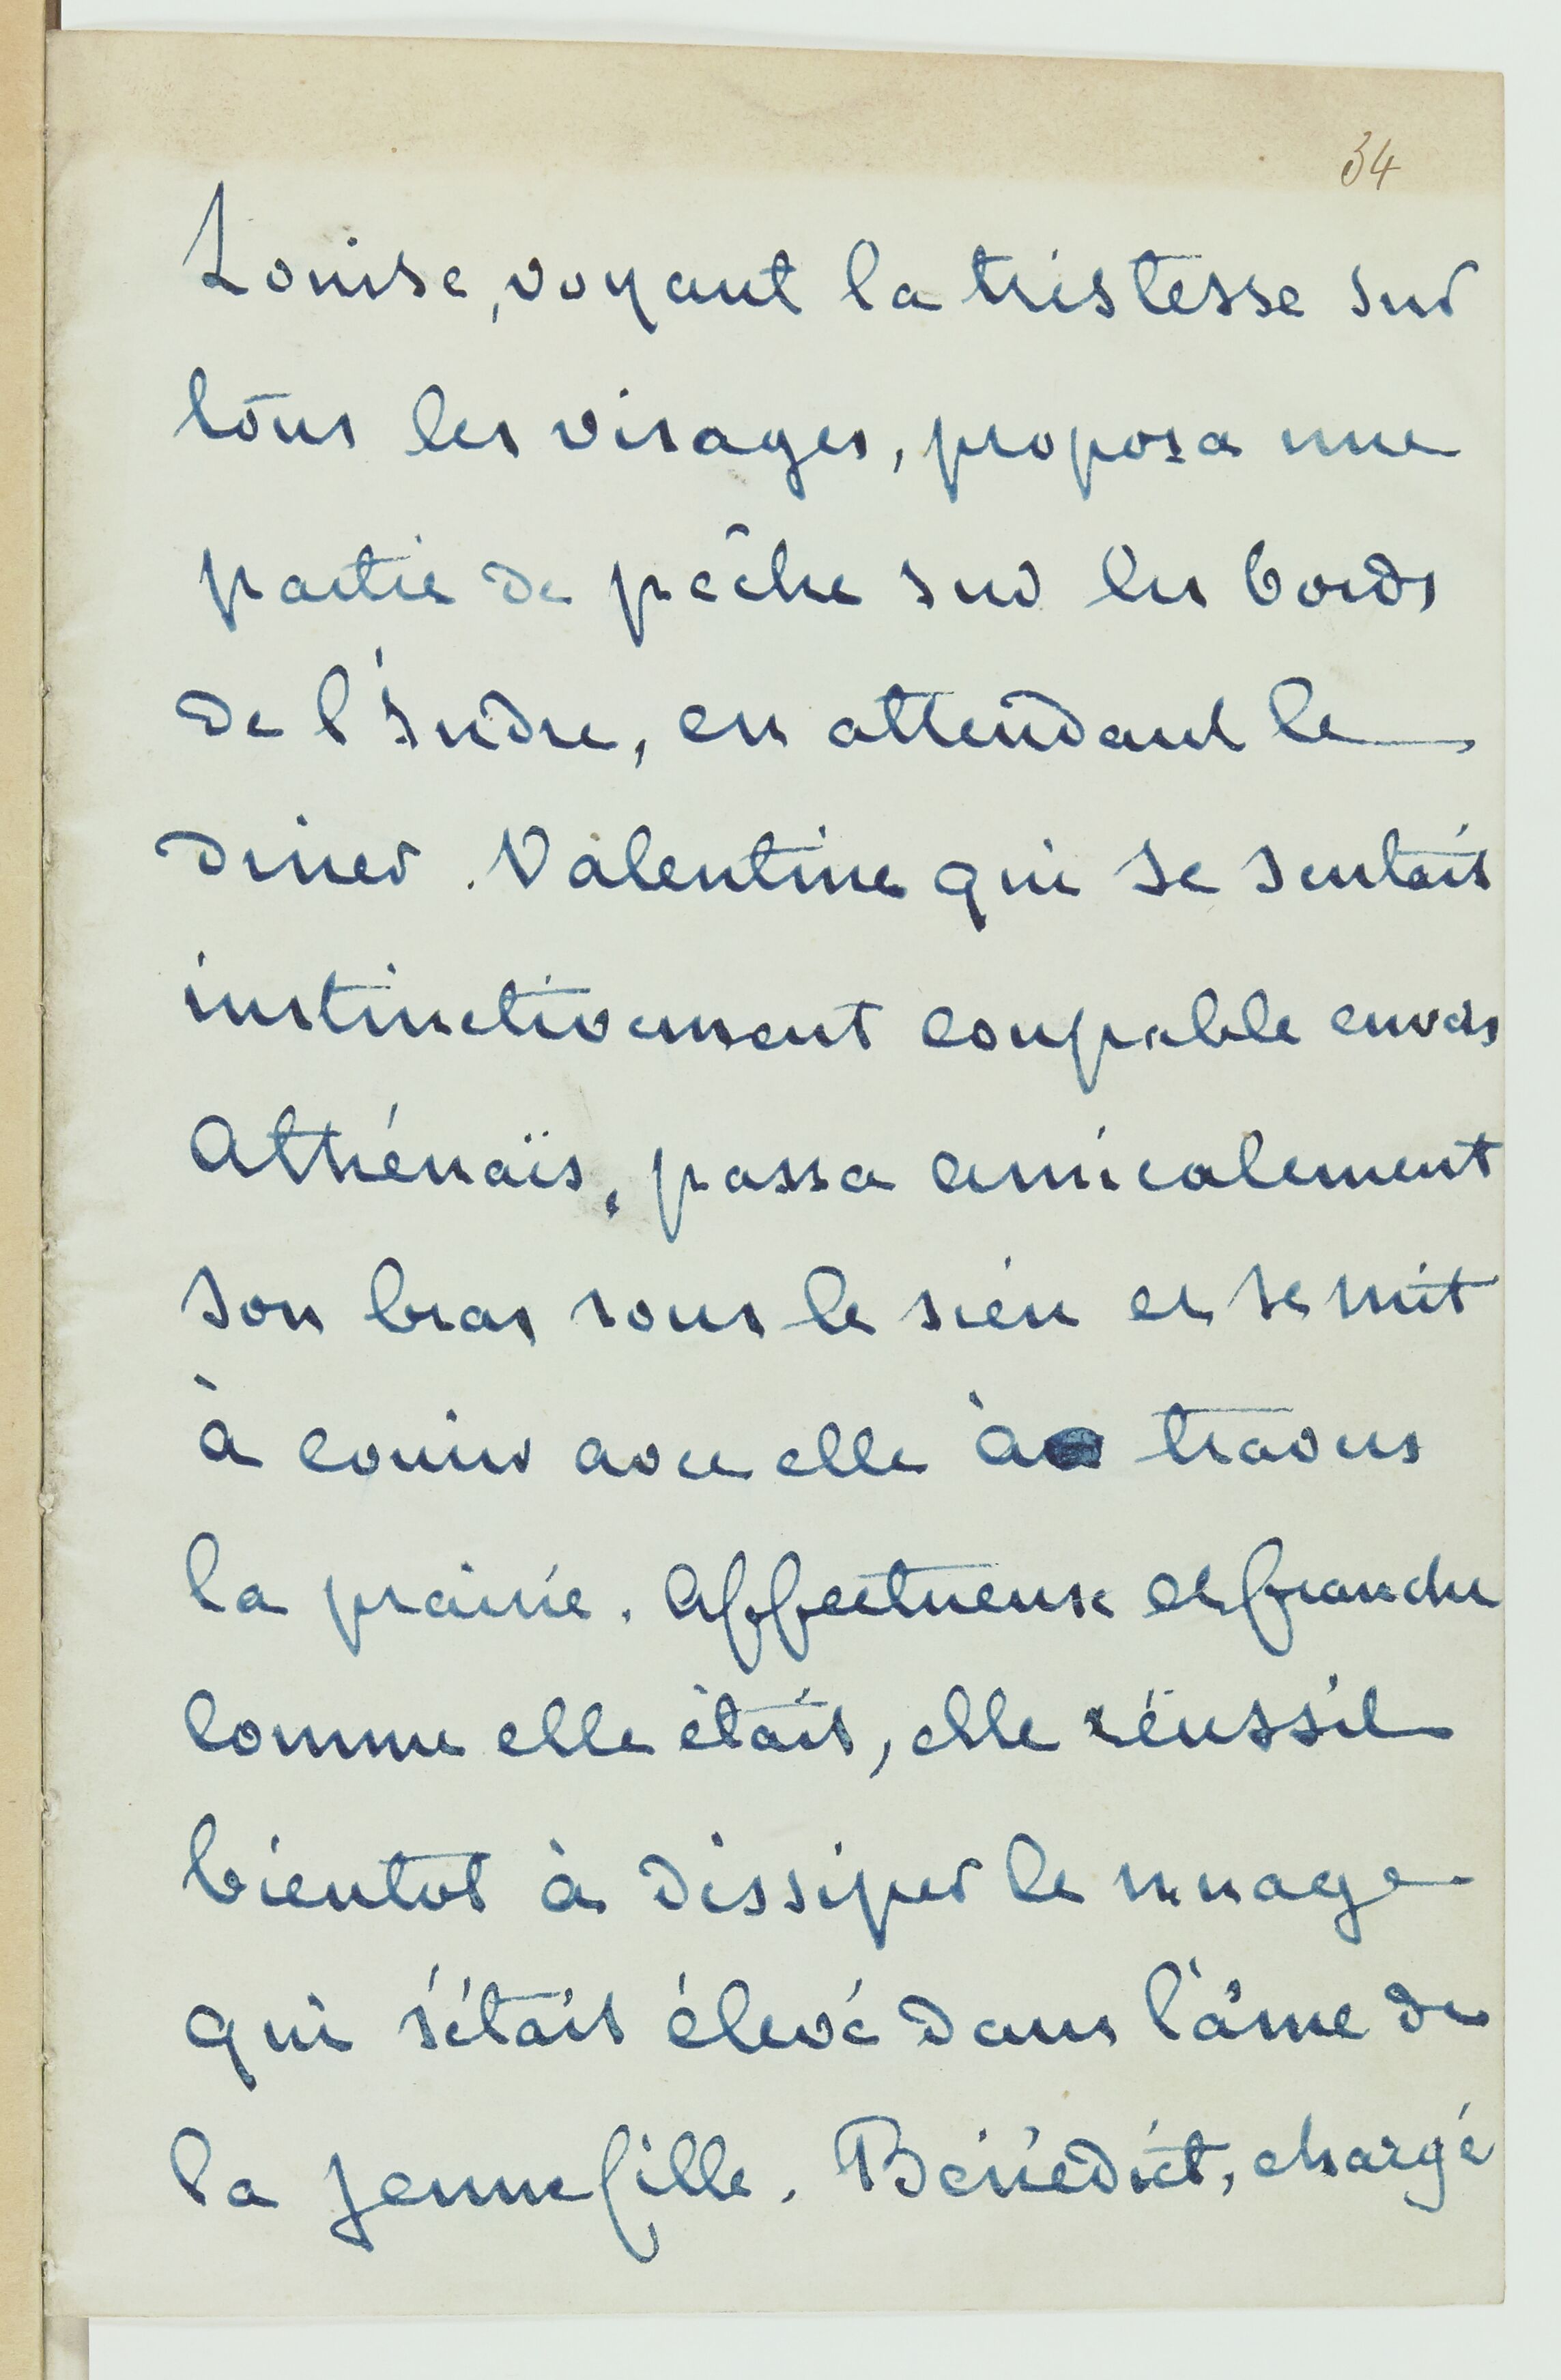 34
Louise, voyant la tristesse sur
tous les visages, proposa une
partie de pêche sur les bords
de l'Indre, en attendant le
diner. Valentine qui se sentait
instinctivement coupable envers
Athénaïs, passa amicalement
son bras sous le sien et se mit
à courir avec elle à travers
la prairie. Affectueuse et franche
comme elle était, elle réussit
bientot à dissiper le nuage
qui s'était élevé dans l'âme de
la jeune fille. Bénédict, chargé